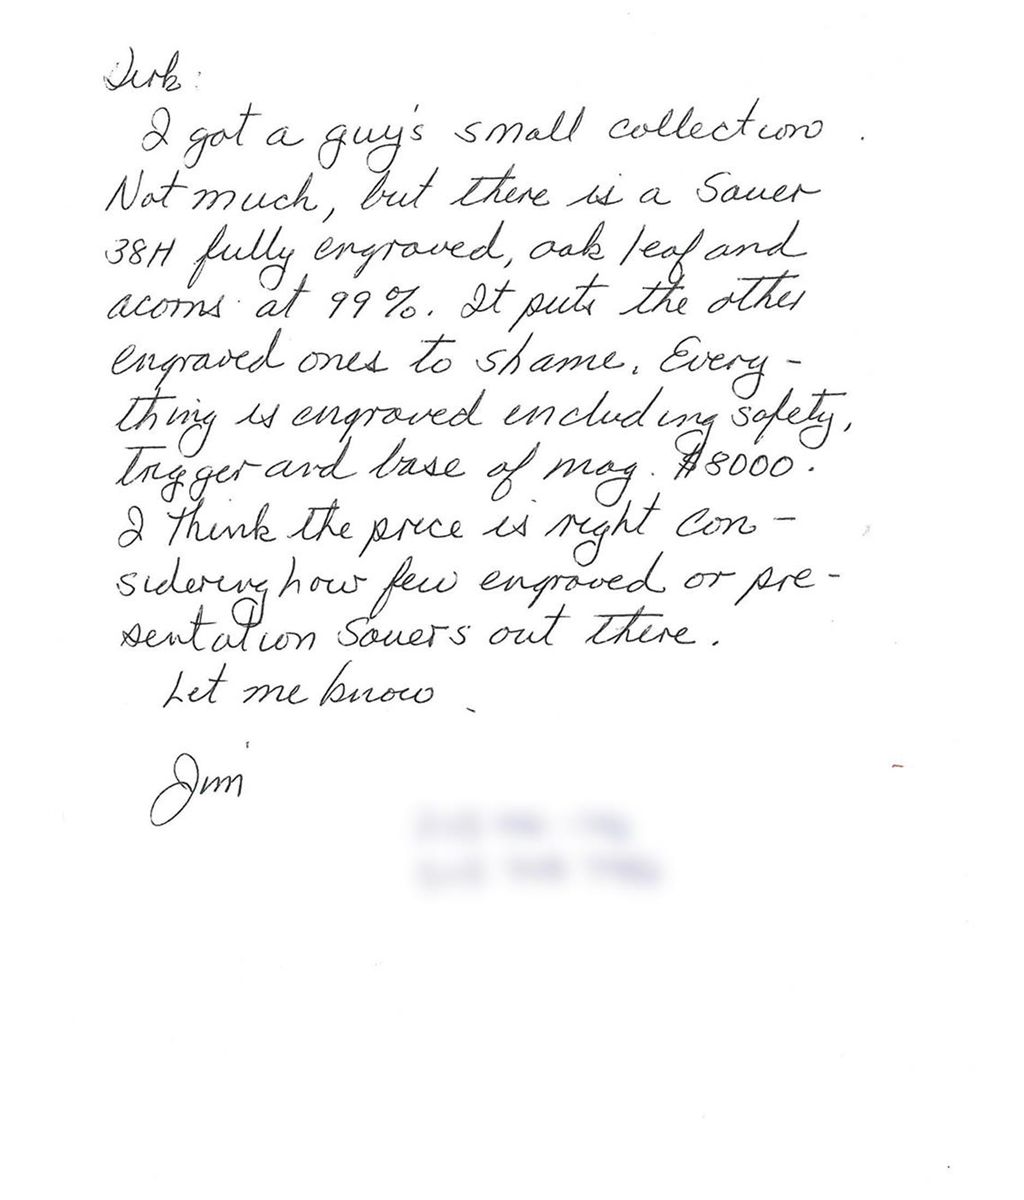 Dirk:
I got a guy's small collection.
Not much, but there is a Sauer
38H fully engraved, oak leaf and
acorns at 99%. It puts the other
engraved ones to shame. Every-
thing is engraved encluding safety,
trigger and base of mag. $8000.
I think the price is right con-
sidering how few engraved or pre-
sentation Sauers out there.
Let me know.
Jim